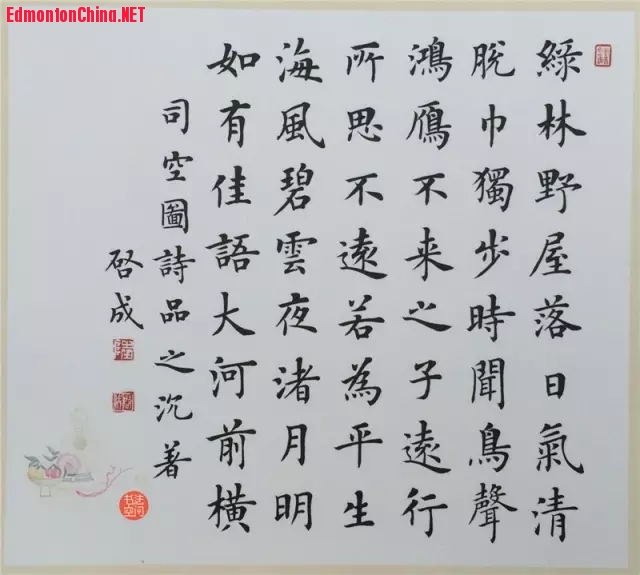 EdmontonChina.NET
綠林野屋落日氣清
脫巾獨步時聞鳥聲
鴻鴈不来之子遠行
所思不遠若為平生
海風碧雲夜渚月明
如有佳語大河前橫
司空圖詩品之沉著
啓成